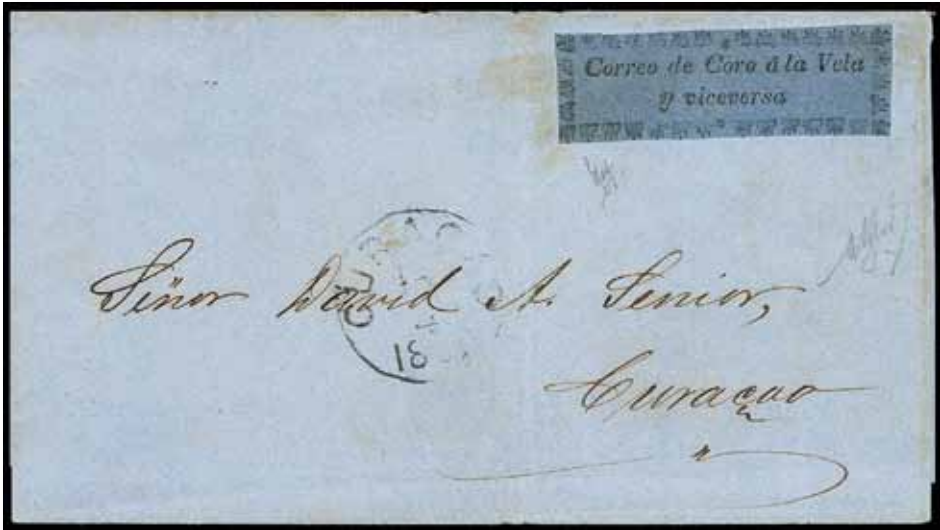 Correo de Coro á la Vela
y viceversa
18
Señor David A. Senior,
Curaçao